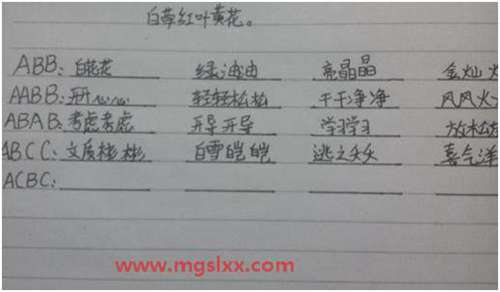 白草红叶黄花。
ABB: 白花花 绿油油 亮晶晶 金灿
AABB: 开开心心 轻轻松松 干干净净 风风火
ABAB: 考虑考虑 开导开导 学习学习 放松
ABCC: 文质彬彬 白雪皑皑 逃之夭夭 喜气洋
ACBC:
www.mgslxx.com